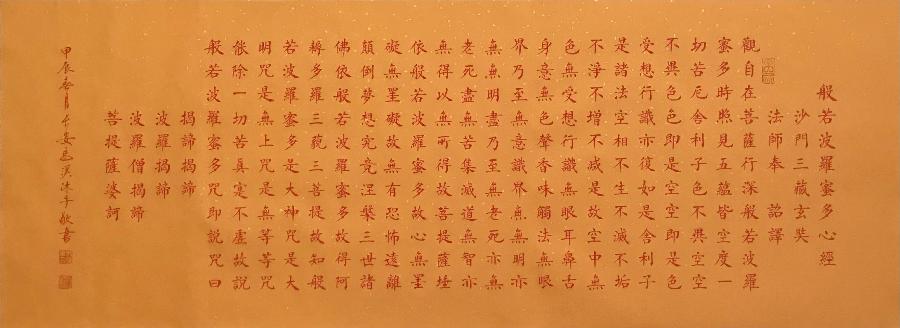 般若波羅蜜多心經
沙門三藏玄奘
法師奉 詔譯
觀自在菩薩行深般若波羅
蜜多時照見五蘊皆空度一
切苦厄舍利子色不異空空
不異色色即是空空即是色
受想行識亦復如是舍利子
是諸法空相不生不滅不垢
不淨不增不減是故空中無
色無受想行識無眼耳鼻舌
身意無色聲香味觸法無眼
界乃至無意識界無無明亦
無無明盡乃至無老死亦無
老死盡無苦集滅道無智亦
無得以無所得故菩提薩埵
依般若波羅蜜多故心無罣
礙無罣礙故無有恐怖遠離
顛倒夢想究竟涅槃三世諸
佛依般若波羅蜜多故得阿
耨多羅三藐三菩提故知般
若波羅蜜多是大神咒是大
明咒是無上咒是無等等咒
能除一切苦真實不虛故說
般若波羅蜜多咒即說咒曰
揭諦揭諦
波羅揭諦
波羅僧揭諦
菩提薩婆訶
甲辰冬月